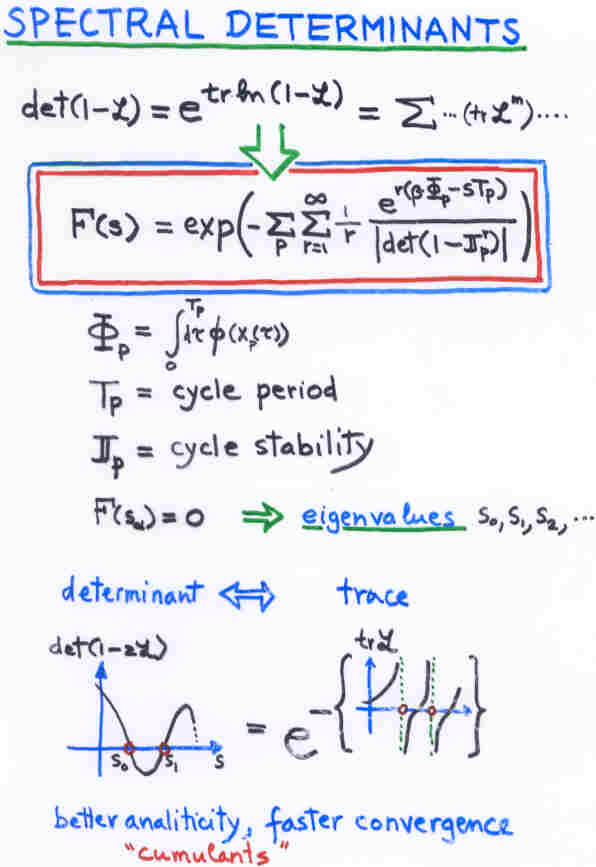 SPECTRAL DETERMINANTS
det(1-ℒ) = e^{tr ln(1-ℒ)} = Σ ... (tr ℒ^m) ....
F(s) = exp(-Σ_p Σ_{r=1}^∞ 1/r e^{r(βΦ_p-sT_p)} / |det(1-𝐉_p^r)|)
Φ_p = ∫_0^{T_p} dτ φ(x_p(τ))
T_p = cycle period
𝐉_p = cycle stability
F(s_α) = 0 ⇒ eigenvalues s_0, s_1, s_2, ...
determinant ⇔ trace
det(1-zℒ) trℒ
= e^-{ }
s_0 s_1 s
better analiticity, faster convergence
"cumulants"